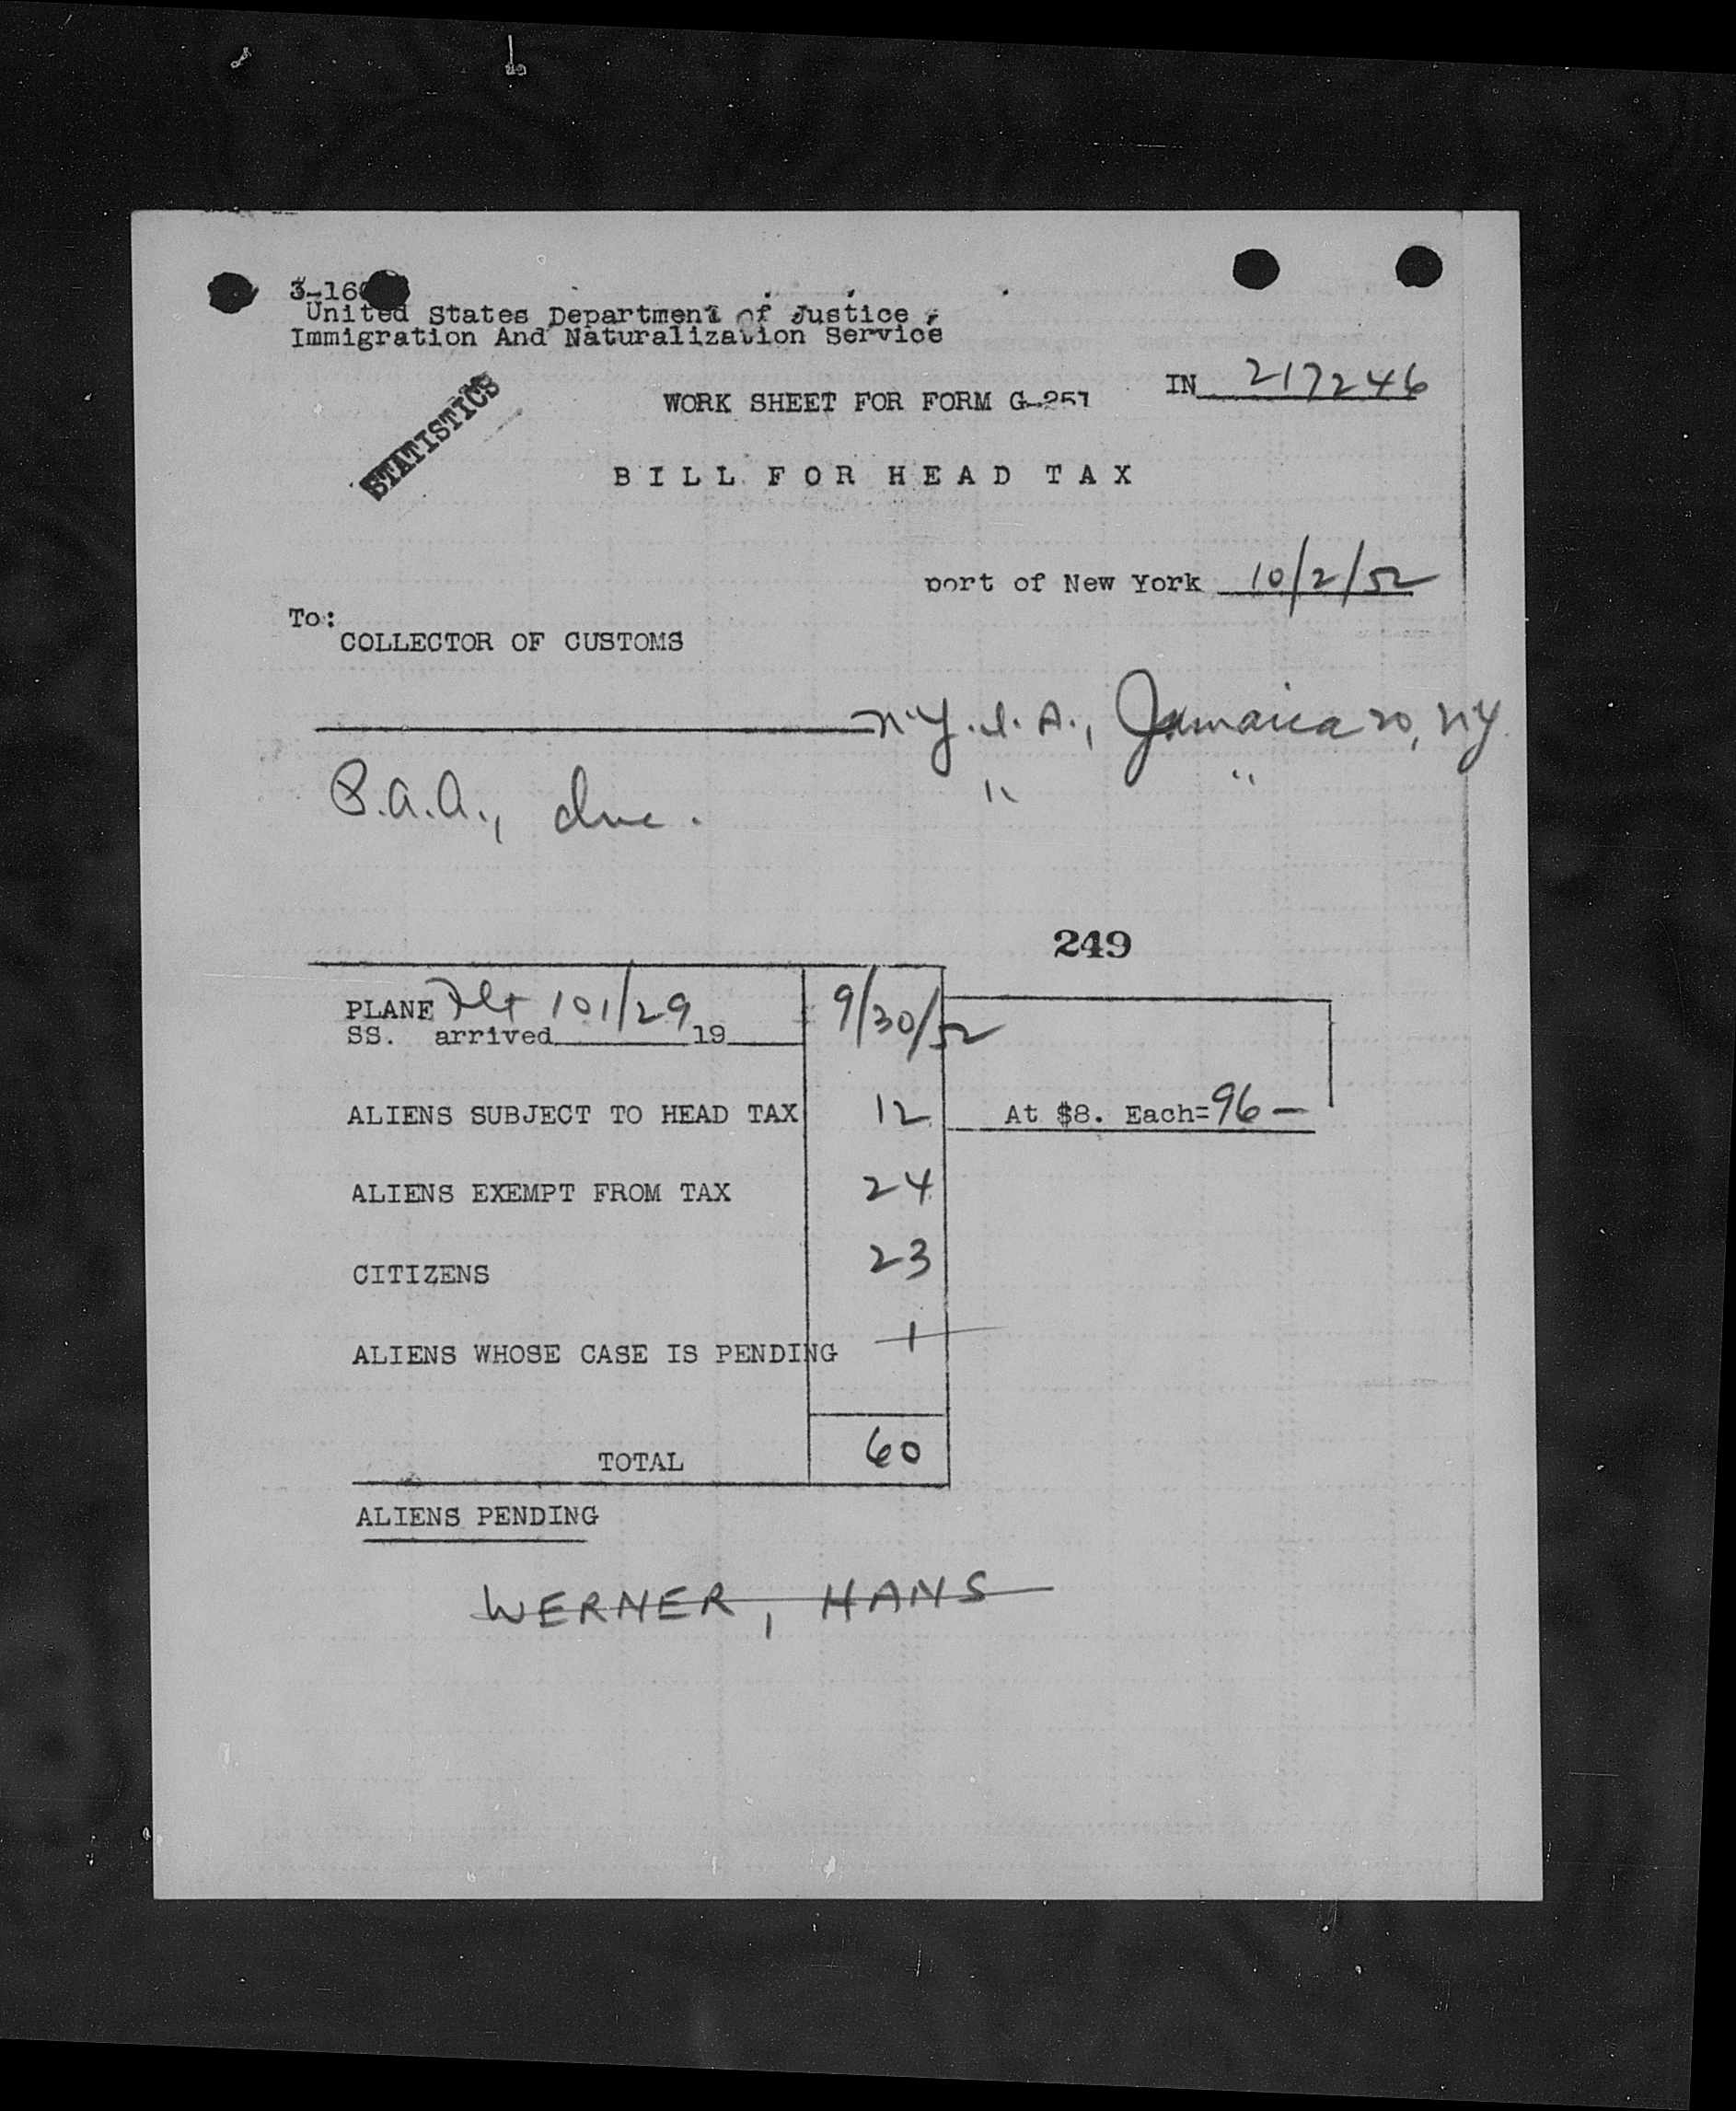 3-16
United States Department of Justice
Immigration And Naturalization Service
STATISTICS
IN 217246
WORK SHEET FOR FORM G-251
BILL FOR HEAD TAX
port of New York 10/2/52
To:
COLLECTOR OF CUSTOMS
N.Y.I.A., Jamaica 20, NY.
P.A.A., Inc. " "
249
PLANE Flt 101/29 9/30/52
SS. arrived 19
ALIENS SUBJECT TO HEAD TAX 12 At $8. Each= 96 —
ALIENS EXEMPT FROM TAX 24
CITIZENS 23
ALIENS WHOSE CASE IS PENDING 1
TOTAL 60
ALIENS PENDING
WERNER, HANS